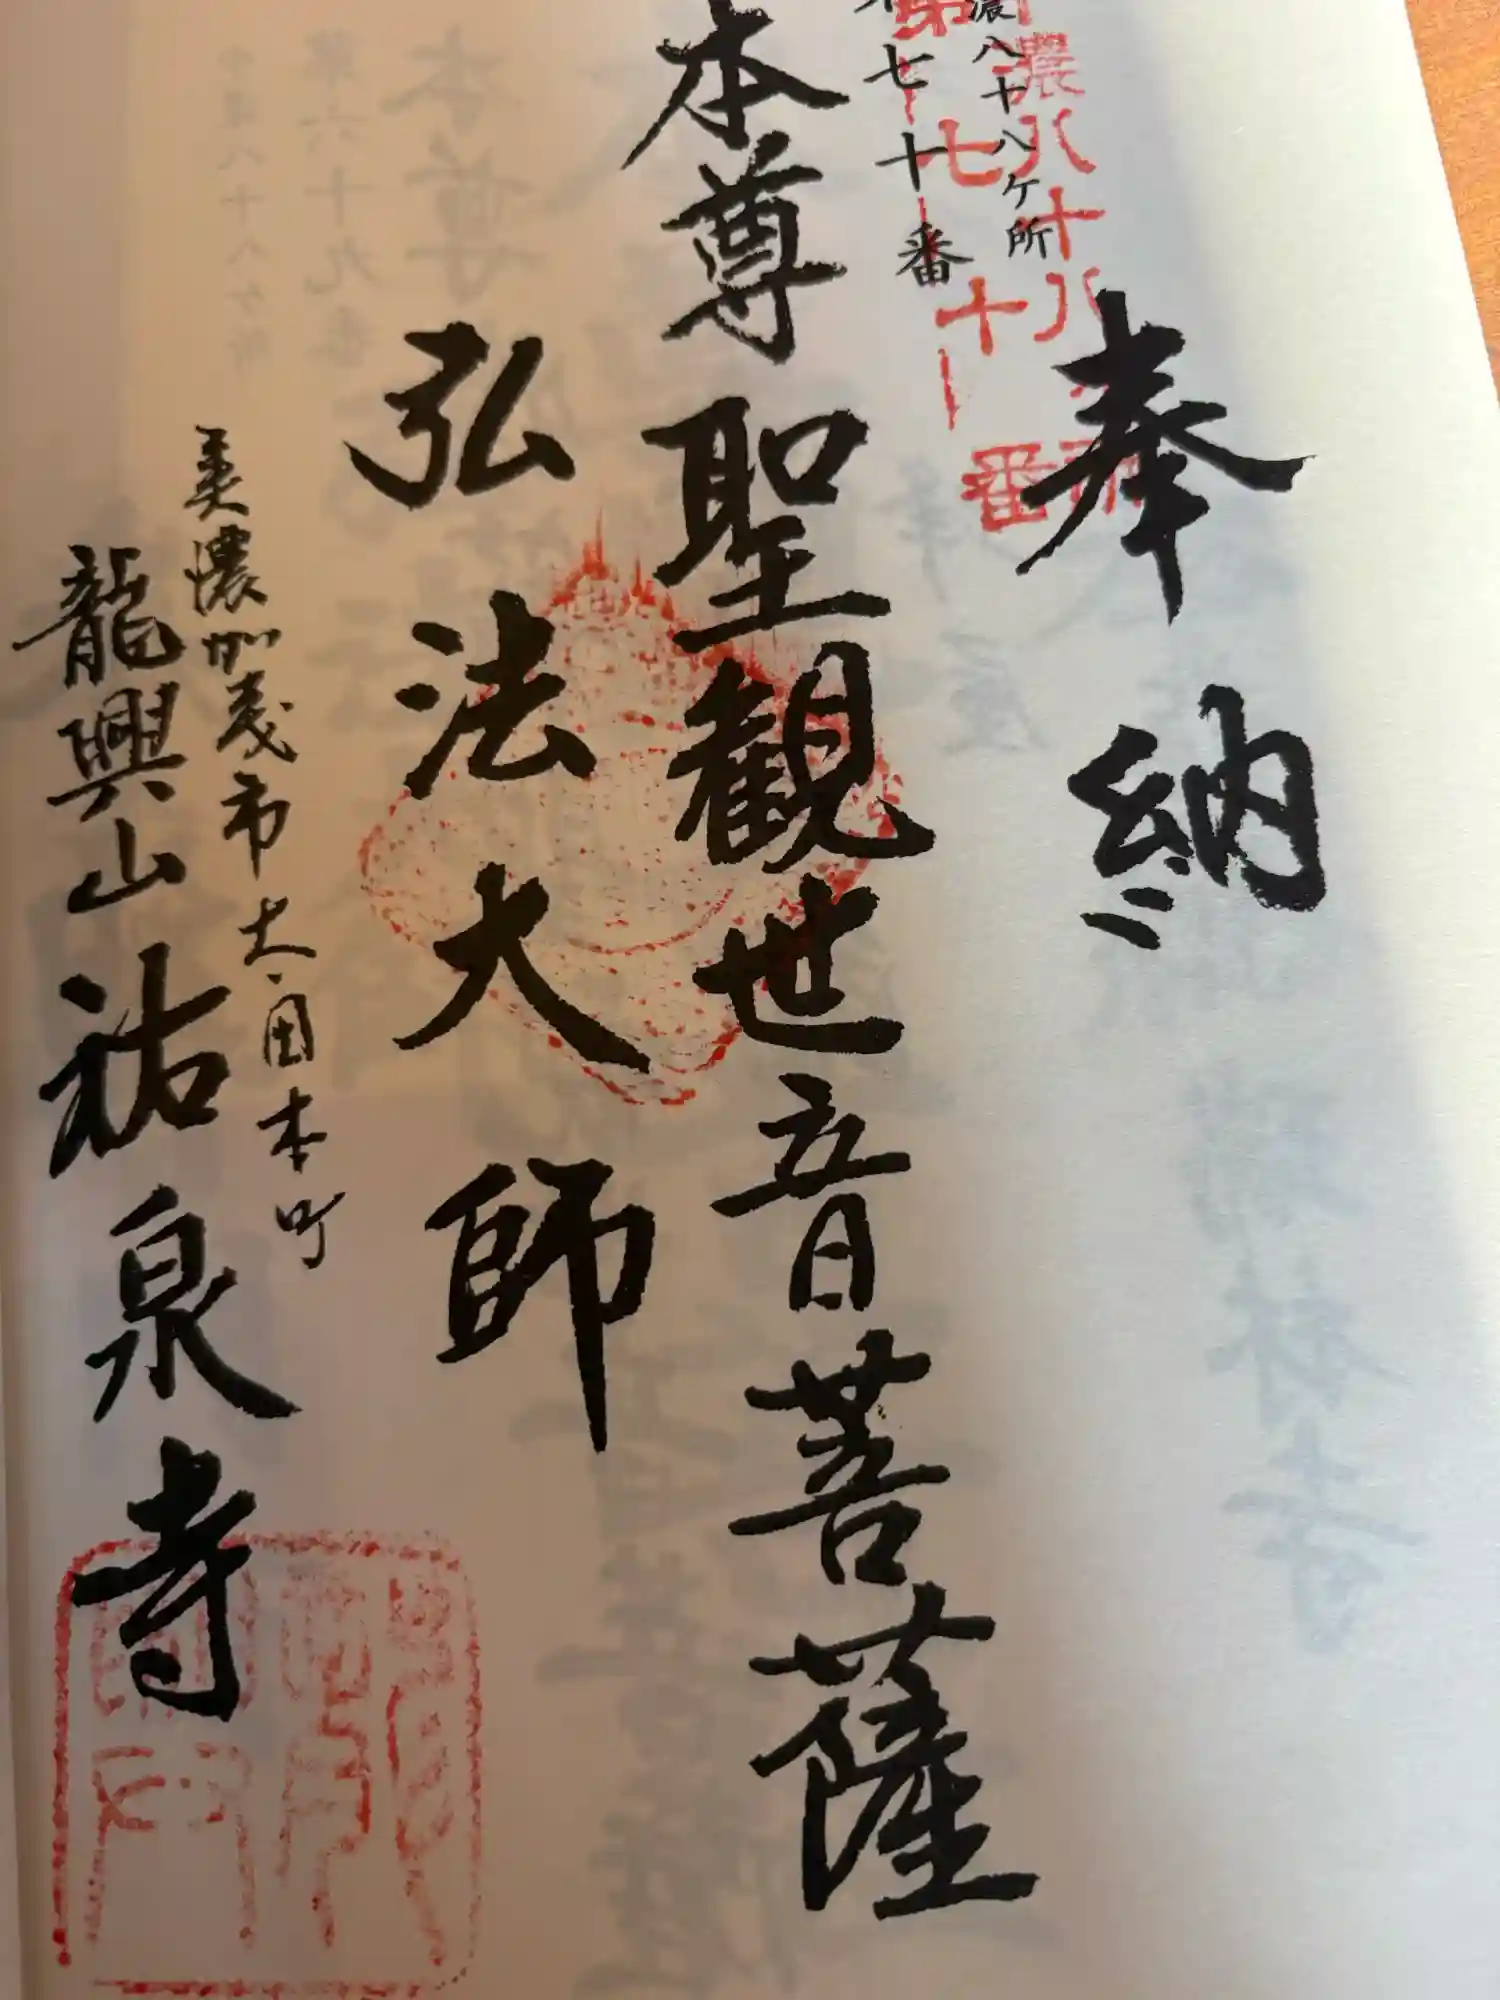 奉納
濃八十八ケ所
濃八十八
七十番
第七十一番
本尊聖観世音菩薩
弘法大師
美濃加茂市太田本町
龍興山祐泉寺